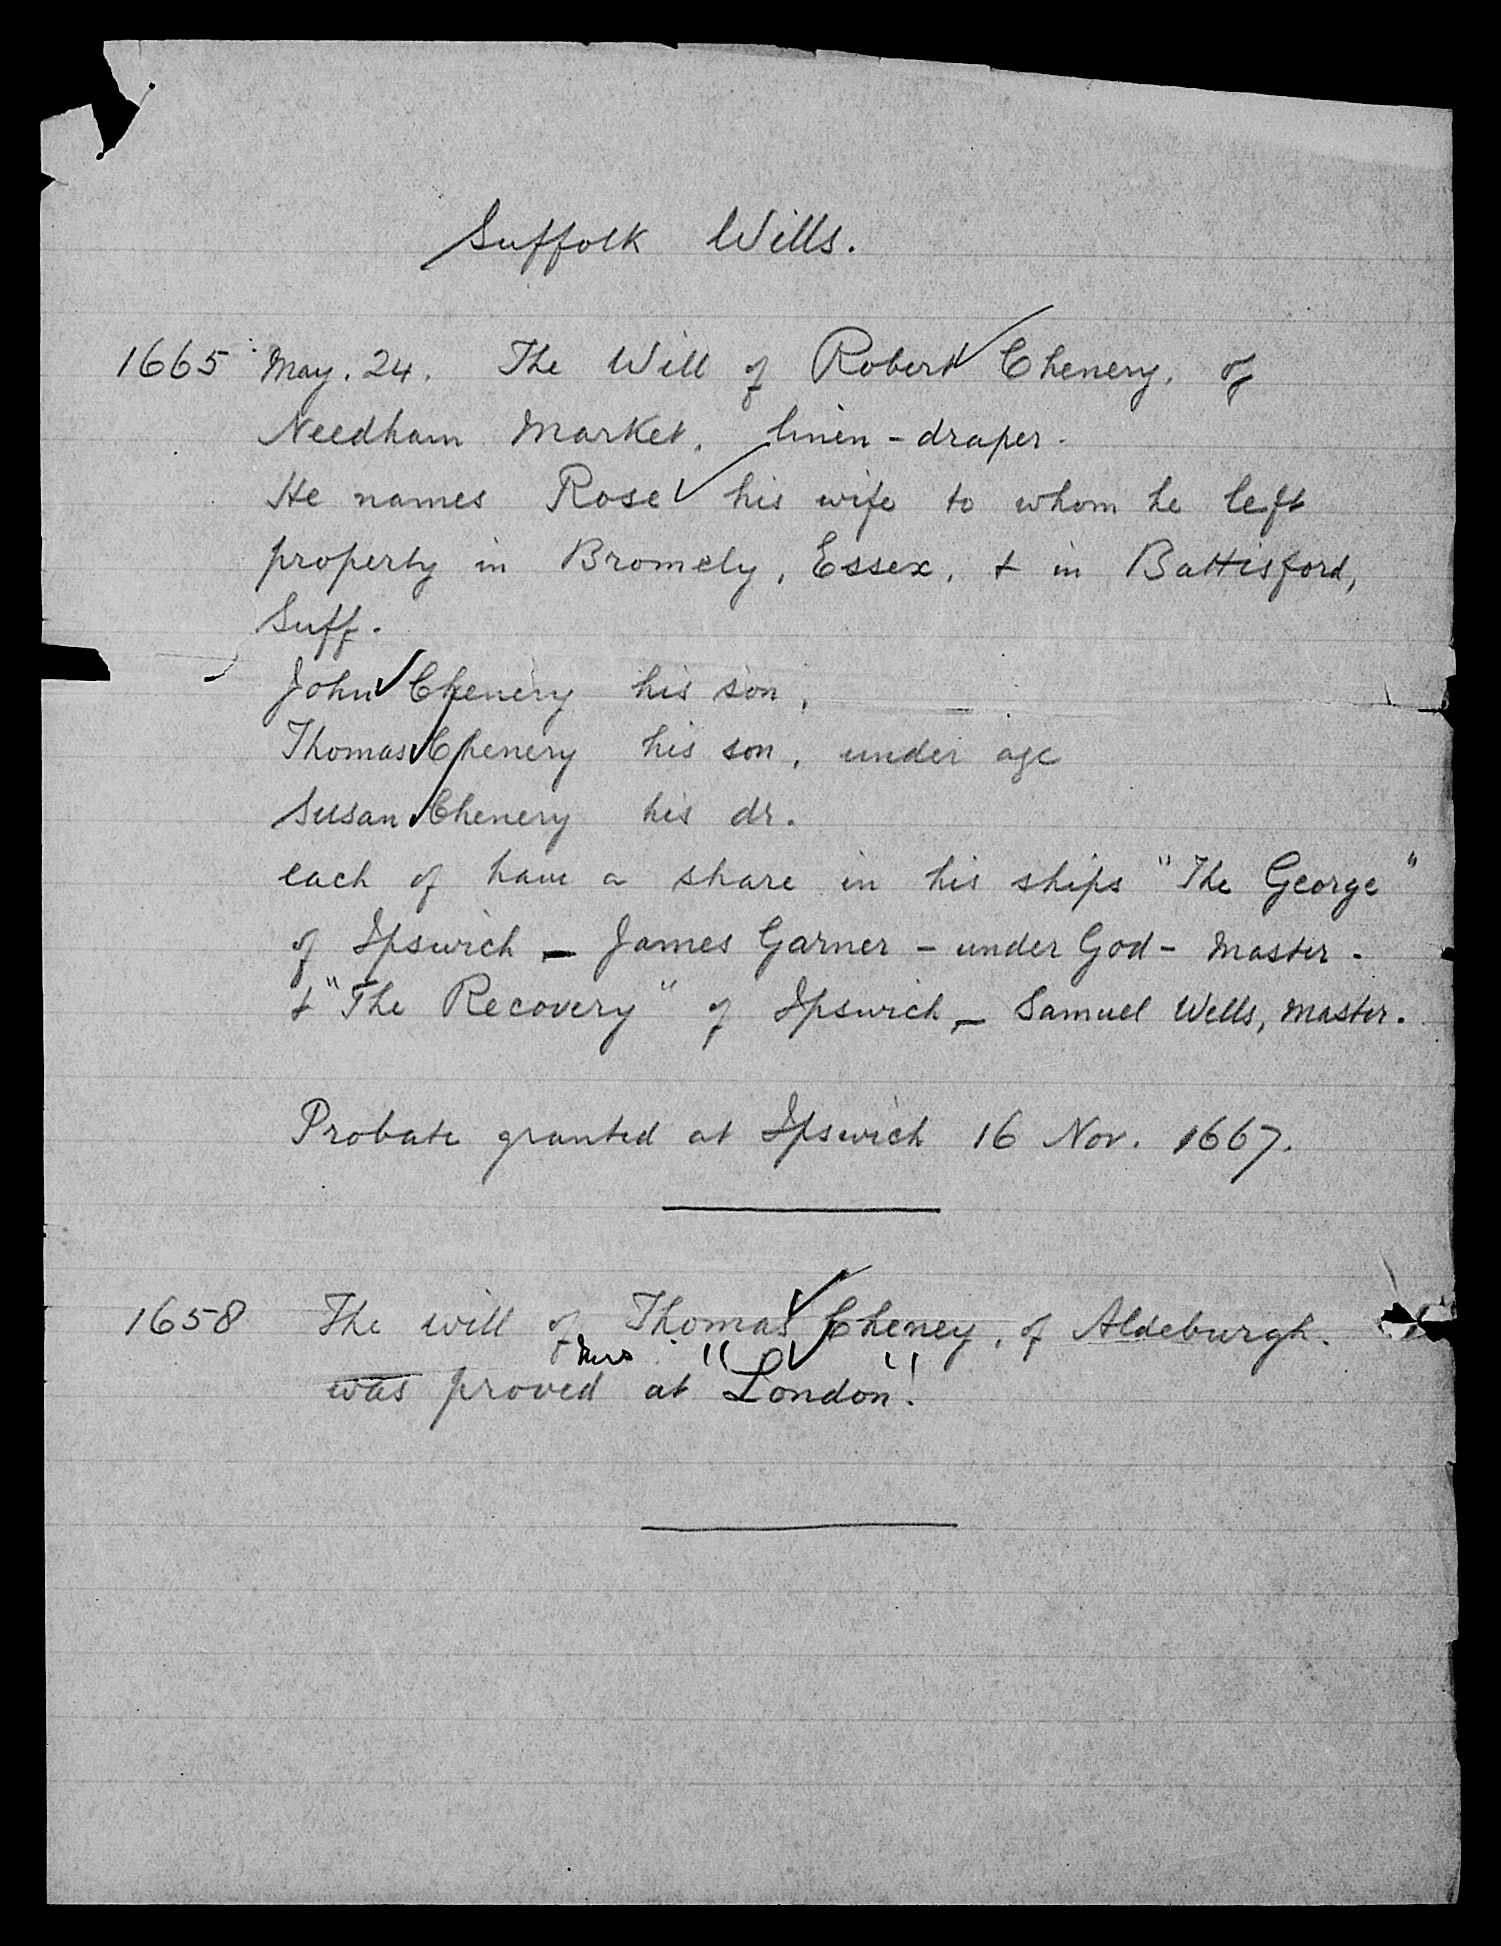 Suffolk Wills.
1665 May. 24. The Will of Robert Chenery, of
Needham Market, linen-draper.
He names Rose his wife to whom he left
property in Bromely, Essex, & in Battisford,
Suff.
John Chenery his son,
Thomas Chenery his son, under age
Susan Chenery his dr.
each of have a share in his ships "The George"
of Ipswich - James Garner - under God - Master -
& "The Recovery" of Ipswich - Samuel Wells, Master.
Probate granted at Ipswich 16 Nov. 1667.
1658 The will of Thomas Cheney, of Aldeburgh.
was proved at "London".